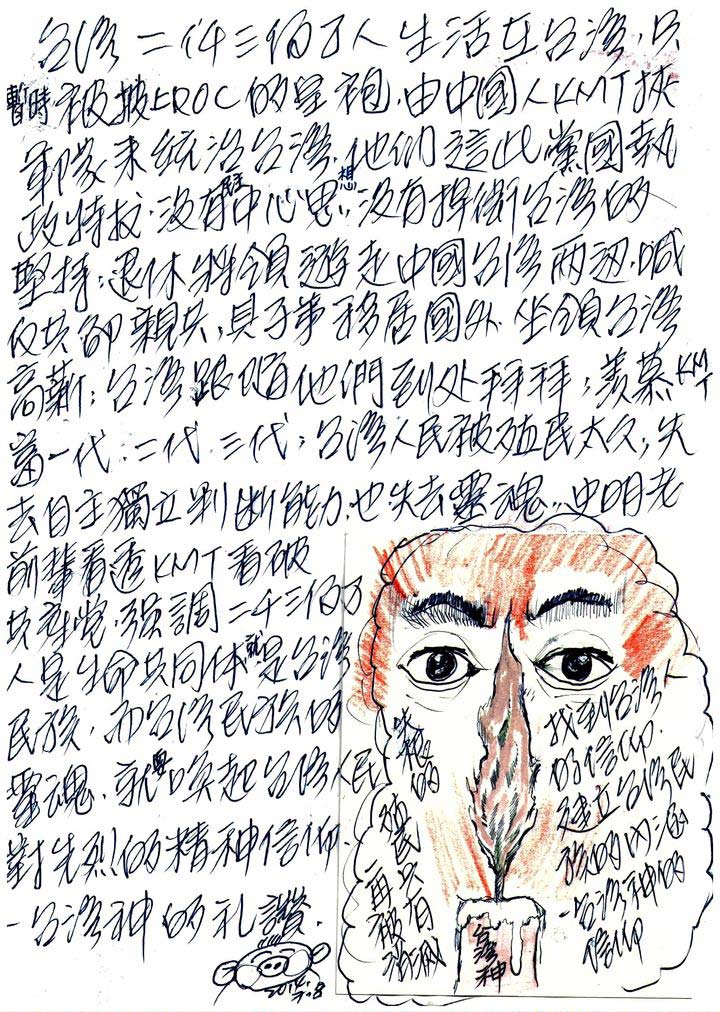 台湾二仟三佰万人生活在台湾，只
暫時被披上ROC的皇袍，由中國人KMT挾
軍隊来統治台湾，他們這些黨國執
政特权，没有民主中心思想，没有捍衛台湾的
堅持；退休將領遊走中國台湾兩边，喊
反共卻親共，其子弟移居國外，坐領台湾
高薪；台湾跟隨他們到处拜拜；羡慕KMT
當一代，二代，三代；台湾人民被殖民太久，失
去自主獨立判断能力，也失去靈魂…史明老
前輩看透KMT看破
共產党，强調二千三佰万
人是生命共同体就是台湾
民族，而台湾民族的
靈魂，就要唤起台湾人民
對先烈的精神信仰
－台湾神的礼讚．
2014.
7.8
失根的
殖民只有
再被
找到台湾人
的信仰．
建立台湾民
族的
－台湾神的
信仰
台湾神